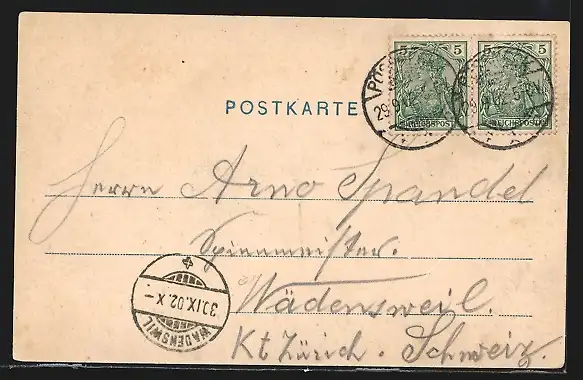 5 5
REICHSPOST REICHSPOST
29.9.02. 5-6N.
POSTKARTE
Herrn Arno Spandel
Spinnmeister.
Wädensweil.
Kt Zürich. Schweiz.
30.IX.02.X-
WÄDENSWIL